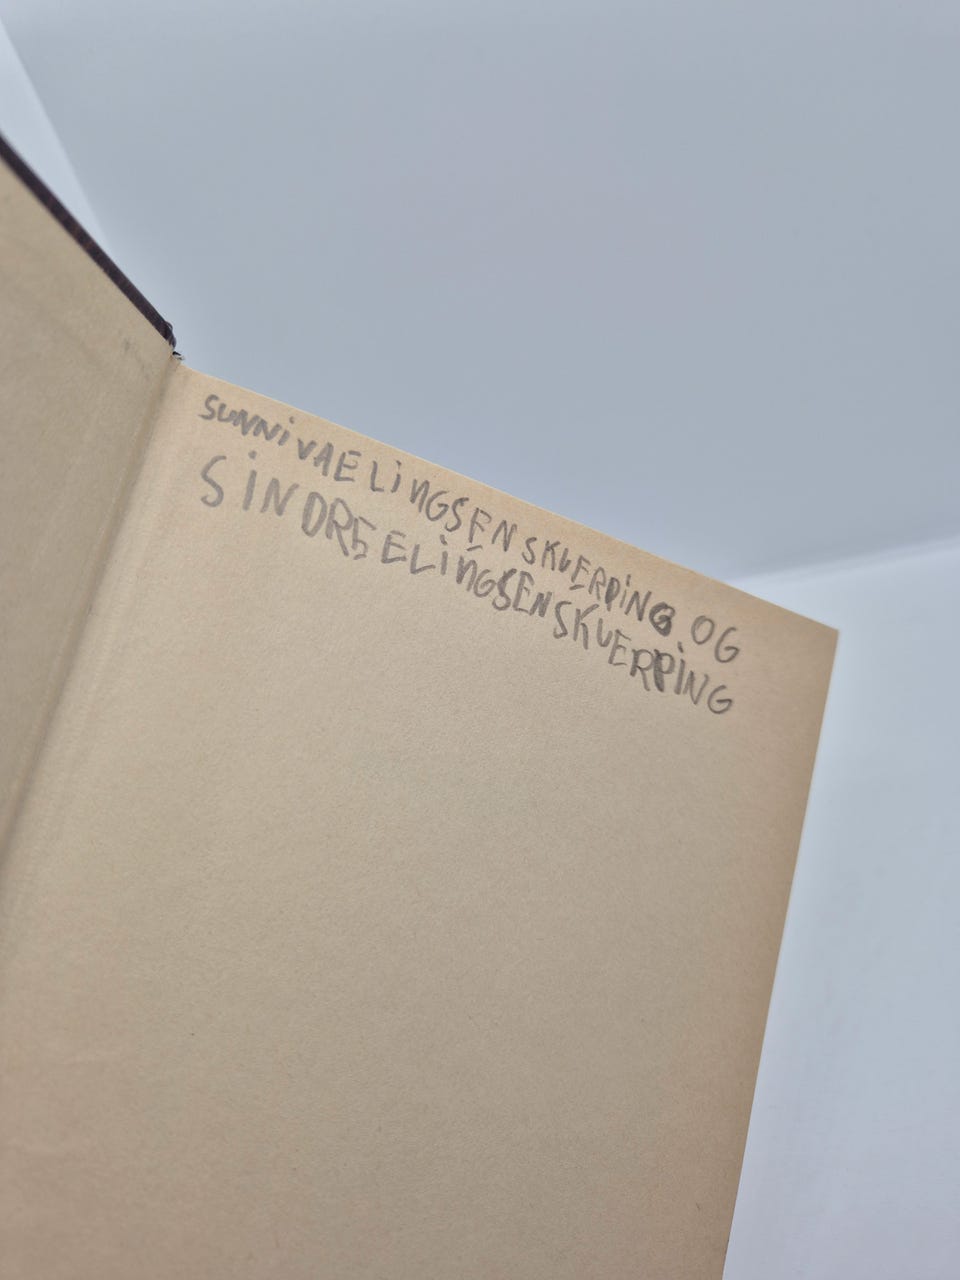 SUNNiVAELiNGSEN SKVERPiNG OG
SiNDRE ELiNGSEN SKVERPiNG